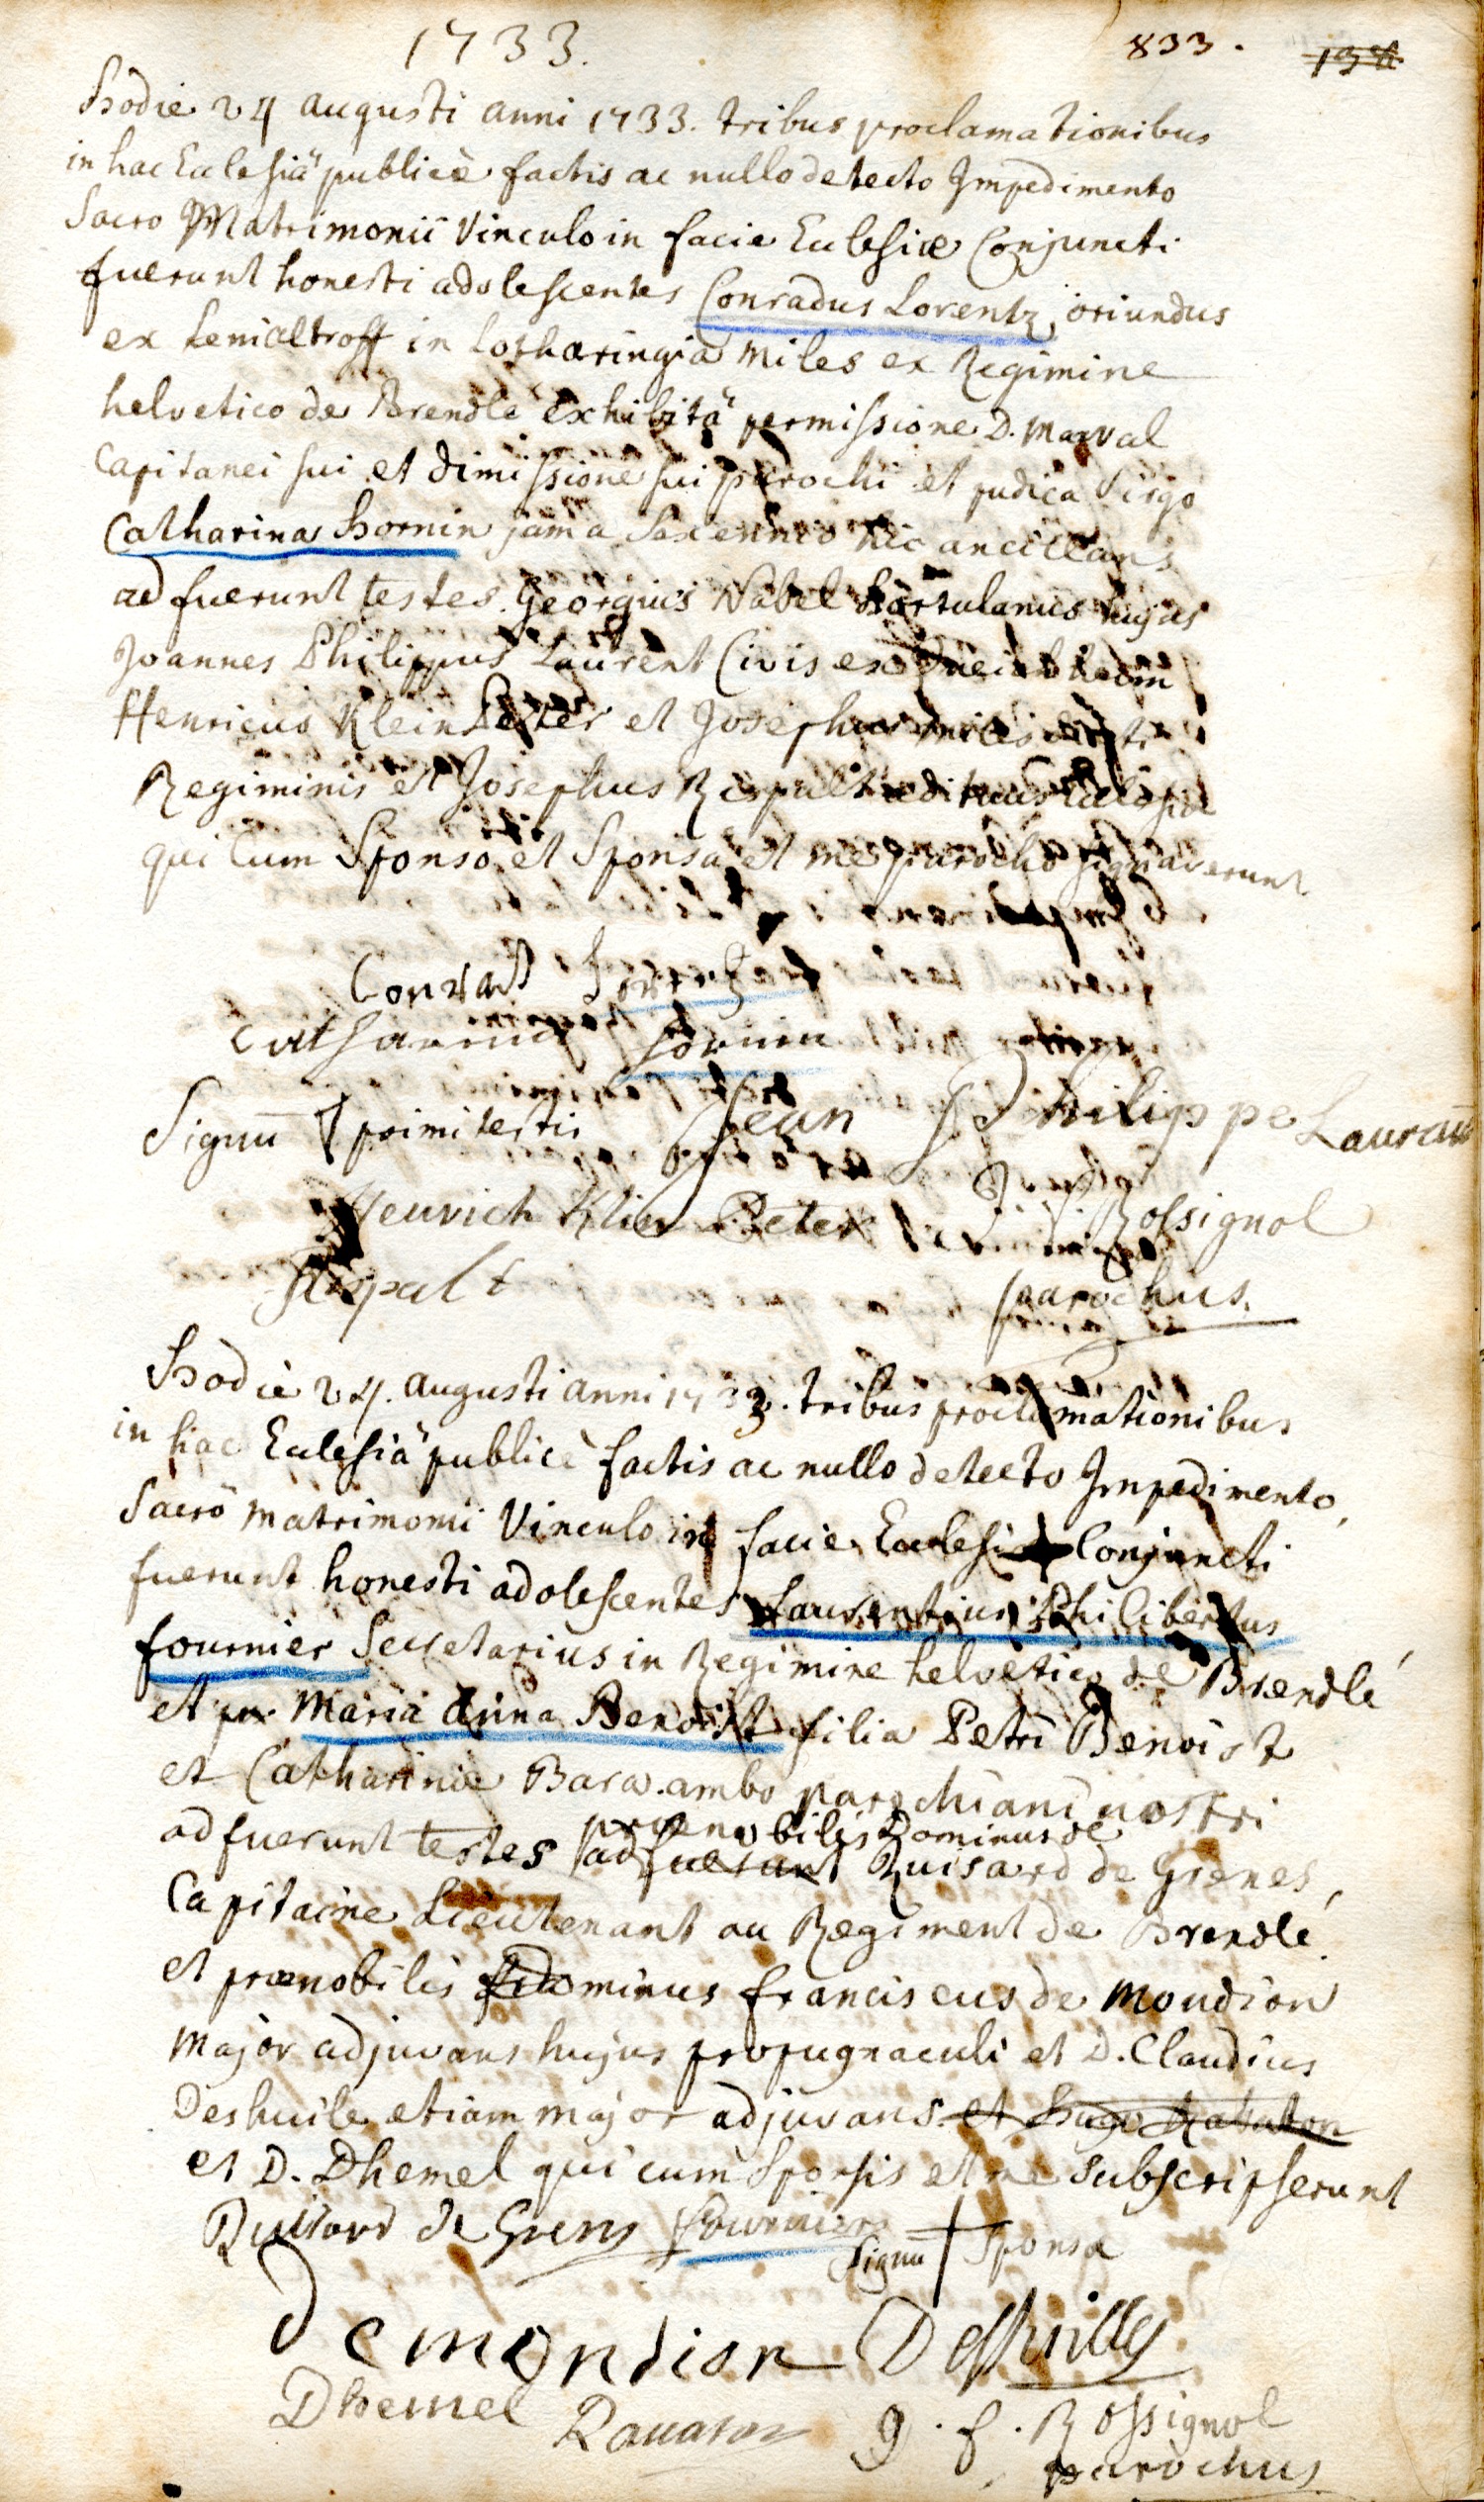 1733.
833. 138
Hodie 24 augusti anni 1733. tribus proclamationibus
in hac Ecclesiâ publicè factis ac nullo detecto Impedimento
Sacro Matrimonii Vinculo in facie Ecclesiæ Conjuncti
fuerunt honesti adolescentes Conradus Lorentz oriundus
ex Lenialtroff in Lotharingia miles ex Regimine
helvetico de Brendlé exhibitâ permissione D. Marval
Capitanei sui et dimissione sui parochi et pudica virgo
Catharina Hornin jam a Sexennio hic ancillans
adfuerunt testes Georgius Nabel hortulanus hujas
Joannes Philippus Laurent Civis ex
Henricus Kleinpeter et Josephus miles dicti
Regiminis et Josephus Rispalt ædituus Ecclesiæ
qui Cum Sponso et Sponsa et me parocho signaverunt
Conrad Lorentz
Catharina Hornin
Signu primi testis Jean Philippe Laurant
Henrich Klien Peter J. f. Rossignol
Rispalt parochus.
Hodie 24. augusti anni 1733. tribus proclamationibus
in hac Ecclesiâ publicè factis ac nullo detecto Impedimento,
Sacrô matrimonii Vinculo in facie Ecclesiæ Conjuncti
fuerunt honesti adolescentes Laurentius Philibertus
fournier Secretarius in Regimine helvetico de Brendlé
et Maria Anna Benoist filia Petri Benoist
et Catharinæ Bara. ambo parochiani nostri
prænobilis Dominus de
adfuerunt testes adfuerunt Quisard de Grenes,
Capitaine Lieutenant au Regiment de Brendlé
et prænobilis dominus franciscus de Mondion
Major adjuvans hujus propugnaculi et D. Claudius
Deshuile etiam major adjuvans et Hugo Rabaton
et D. Dhemel qui cum Sponsis et me subscripserunt
Quisard de Grens fournier Signu Sponsæ
Demondion Deshuilles
Dhemel Rauaton J. f. Rossignol
parochus